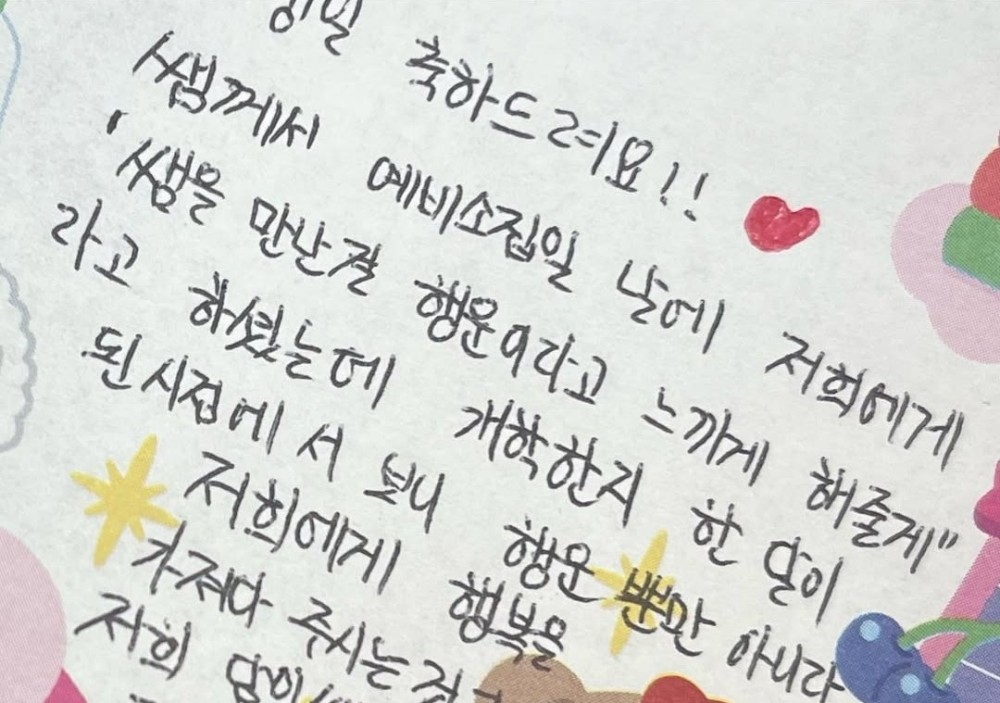 축하드려요!!
쌤께서 예비소집일 날에 저희에게
"쌤을 만난걸 행운이라고 느끼게 해줄게"
라고 하셨는데 개학한지 한 달이
된 시점에서 보니 행운 뿐만 아니라
저희에게 행복을
가져다 주시는
저희 담임